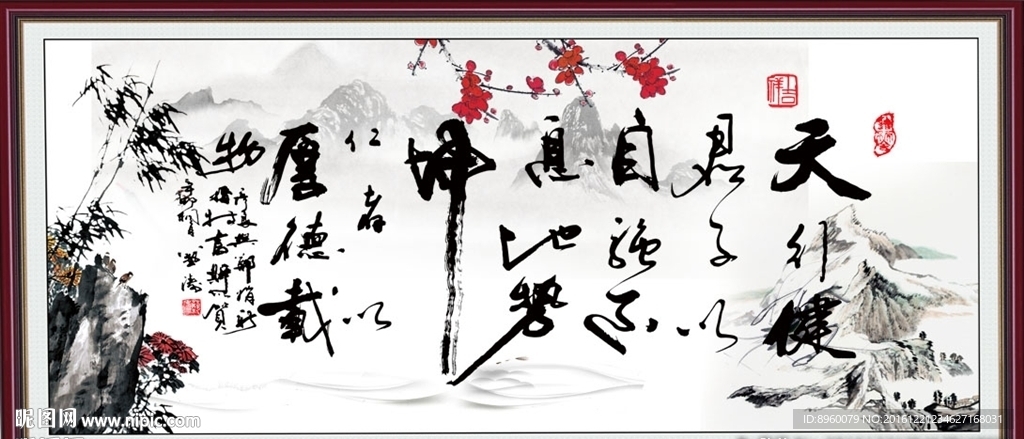 天行健
君子以
自强不
息地势
坤
仁者以
厚德载
物
昵图网 www.nipic.com
ID:8960079 NO:20161221234627168031